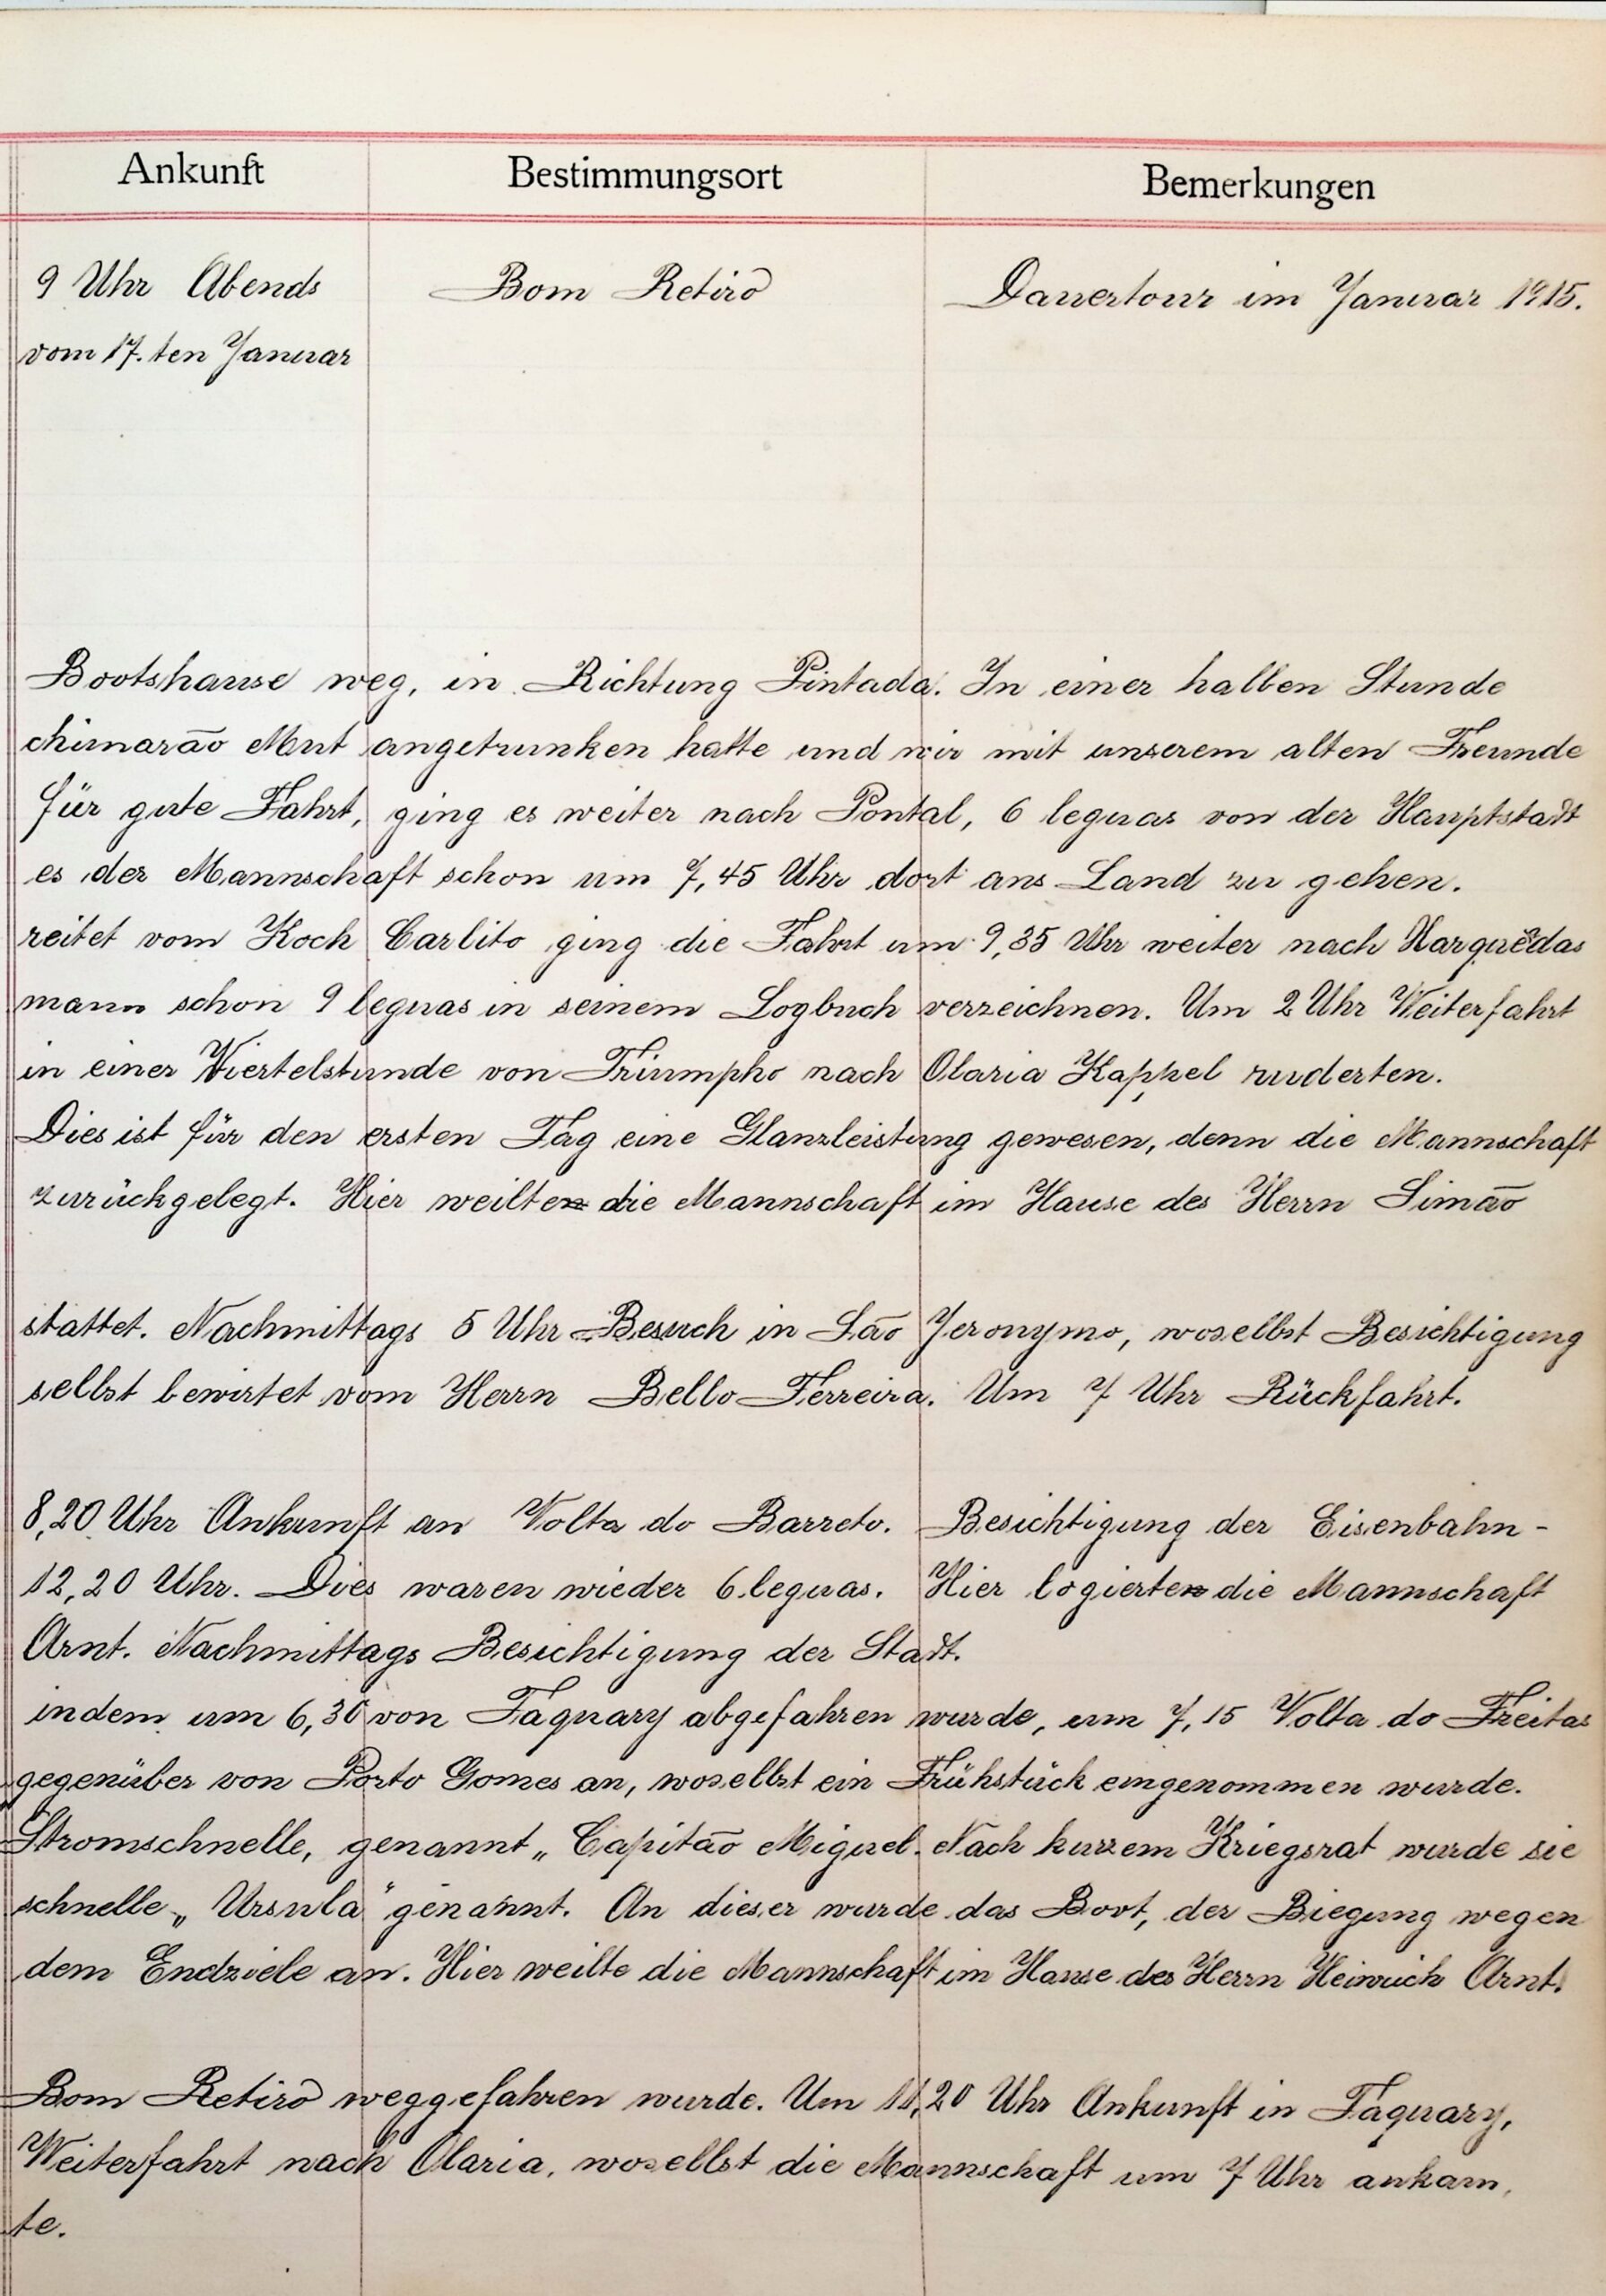 Ankunft Bestimmungsort Bemerkungen
9 Uhr Abends Bom Retiro Dauertour im Januar 1915.
vom 17.ten Januar
Bootshause weg, in Richtung Pintada. In einer halben Stunde
chimarão Mut angetrunken hatte und wir mit unserem alten Freunde
für gute Fahrt, ging es weiter nach Pontal, 6 leguas von der Hauptstadt
es der Mannschaft schon um 7,45 Uhr dort ans Land zu gehen.
reitet vom Koch Carlito ging die Fahrt um 9,35 Uhr weiter nach
mann schon 9 leguas in seinem Logbuch verzeichnen. Um 2 Uhr Weiterfahrt
in einer Viertelstunde von Triumpho nach Olaria Kappel ruderten.
Dies ist für den ersten Tag eine Glanzleistung gewesen, denn die Mannschaft
zurückgelegt. Hier weilten die Mannschaft im Hause des Herrn Simão
stattet. Nachmittags 5 Uhr Besuch in São Jeronymo, woselbst Besichtigung
selbst bewirtet vom Herrn Bello Ferreira. Um 7 Uhr Rückfahrt.
8,20 Uhr Ankunft an Volta do Barreto. Besichtigung der Eisenbahn-
12,20 Uhr. Dies waren wieder 6 leguas. Hier logierten die Mannschaft
Arnt. Nachmittags Besichtigung der Stadt.
indem um 6,30 von Taquary abgefahren wurde, um 7,15 Volta do Freitas
gegenüber von Porto Gomes an, woselbst ein Frühstück eingenommen wurde.
Stromschnelle, genannt „Capitão Miguel. Nach kurzem Kriegsrat wurde sie
schnelle „Ursula" genannt. An dieser wurde das Boot, der Biegung wegen
dem Endziele an. Hier weilte die Mannschaft im Hause des Herrn Heinrich Arnt.
Bom Retiro weggefahren wurde. Um 11,20 Uhr Ankunft in Taquary,
Weiterfahrt nach Olaria, woselbst die Mannschaft um 7 Uhr ankam,
te.